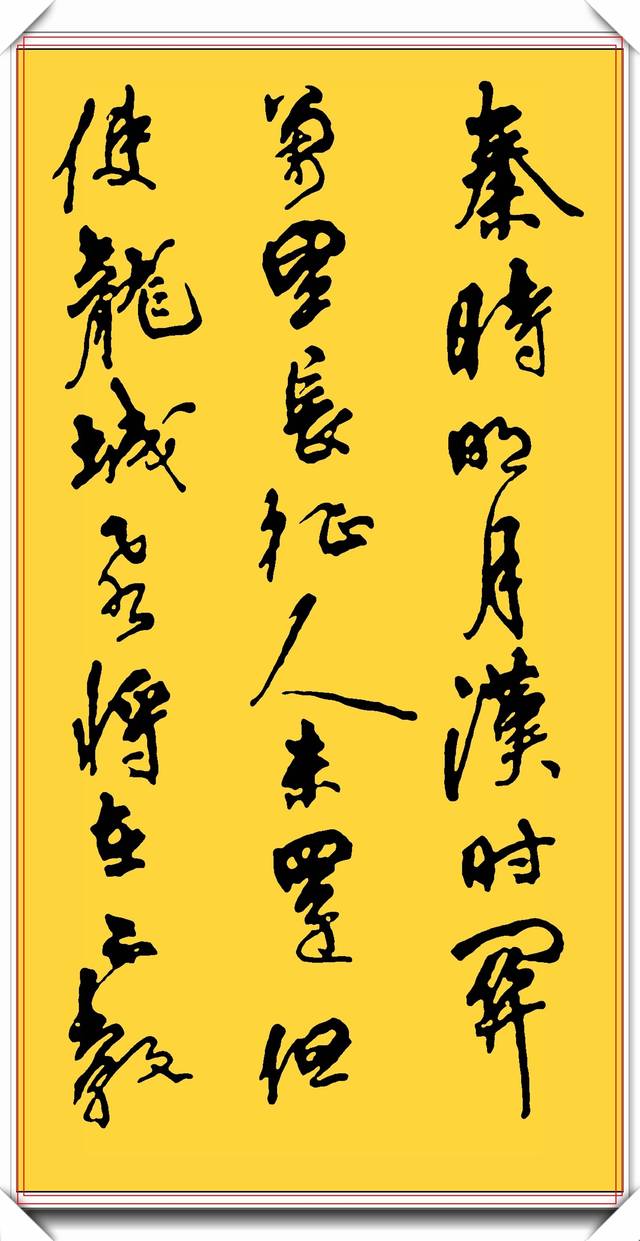 秦時明月漢时關
萬里長征人未還但
使龍城飛将在不教